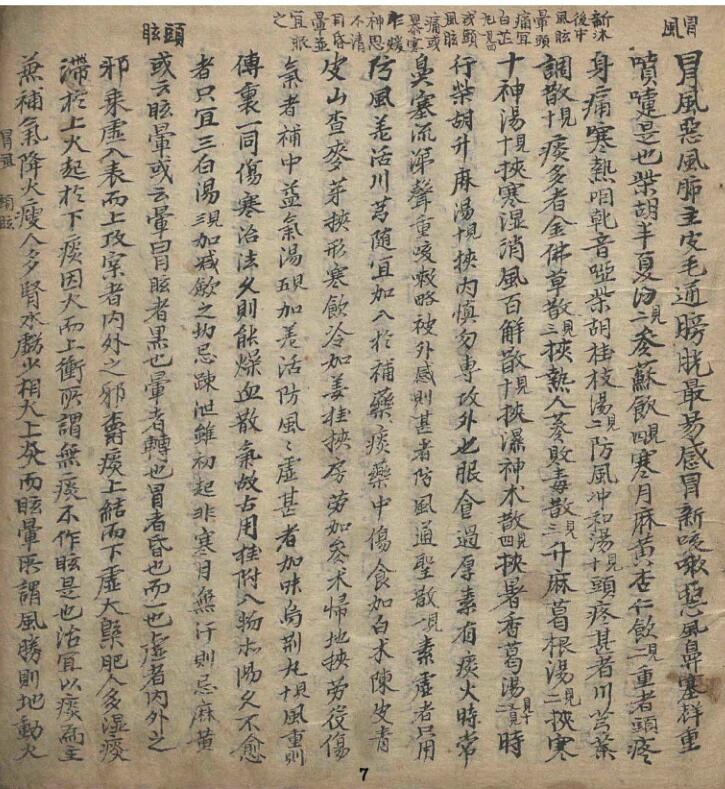 冒風
冒風惡風肺主皮毛通膀胱最易感冒新咳嗽惡風鼻塞群重
噴嚏是也柴胡半夏湯二見參蘇飲四見寒月麻黃杏仁飲二見重者頭疼
身痛寒熱咽乾音啞柴胡桂枝湯二見防風冲和湯十見頭疼甚者川芎茶
調散十見痰多者金佛草散三見挾熱人參敗毒散三見升麻葛根湯二見挾寒
新沐
後中
風眩
暈頭
痛宜
白芷
丸一見
或頭
風眩
痛或
暴寒
乍煖
神思
不清
昏
暈並
宜服
之
十神湯十見挾寒湿消風百解散十見挾濕神术散四見挾暑香葛湯二見時
行柴胡升麻湯十見挾內慎勿專攻外也服食過厚素有痰火時常
鼻塞流涕聲重咳嗽略被外感則甚者防風通聖散一見素虛者只用
防風羌活川芎隨宜加入於補藥痰藥中傷食加白术陳皮青
皮山查麥芽挾形寒飲冷加姜桂挾房劳加參术歸地挾劳役傷
氣者補中益氣湯五見加羌活防風々虛甚者加味烏荆丸十見風重則
傳裏一同傷寒治法久則能燥血散氣故古用桂附入湯久不愈
者只宜三白湯三見加減飲之切忌踈泄雖初起非寒月無汗則忌麻黃
頭眩
或云眩暈或云暈冒眩者黑也暈者轉也冒者昏也而一也虛者內外之
邪乘虛入表而上攻寔者內外之邪痰上結而下虛大槩肥人多湿痰
滯於上火起於下痰因火而上衝所謂無痰不作眩是也治宜以痰為主
兼補氣降火瘦人多腎水虧少相火上炎而眩暈所謂風勝則地動火
冒風 頭眩
7